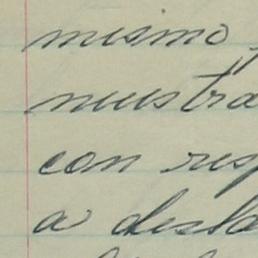 mismo,
nuestra
con resp
a desta